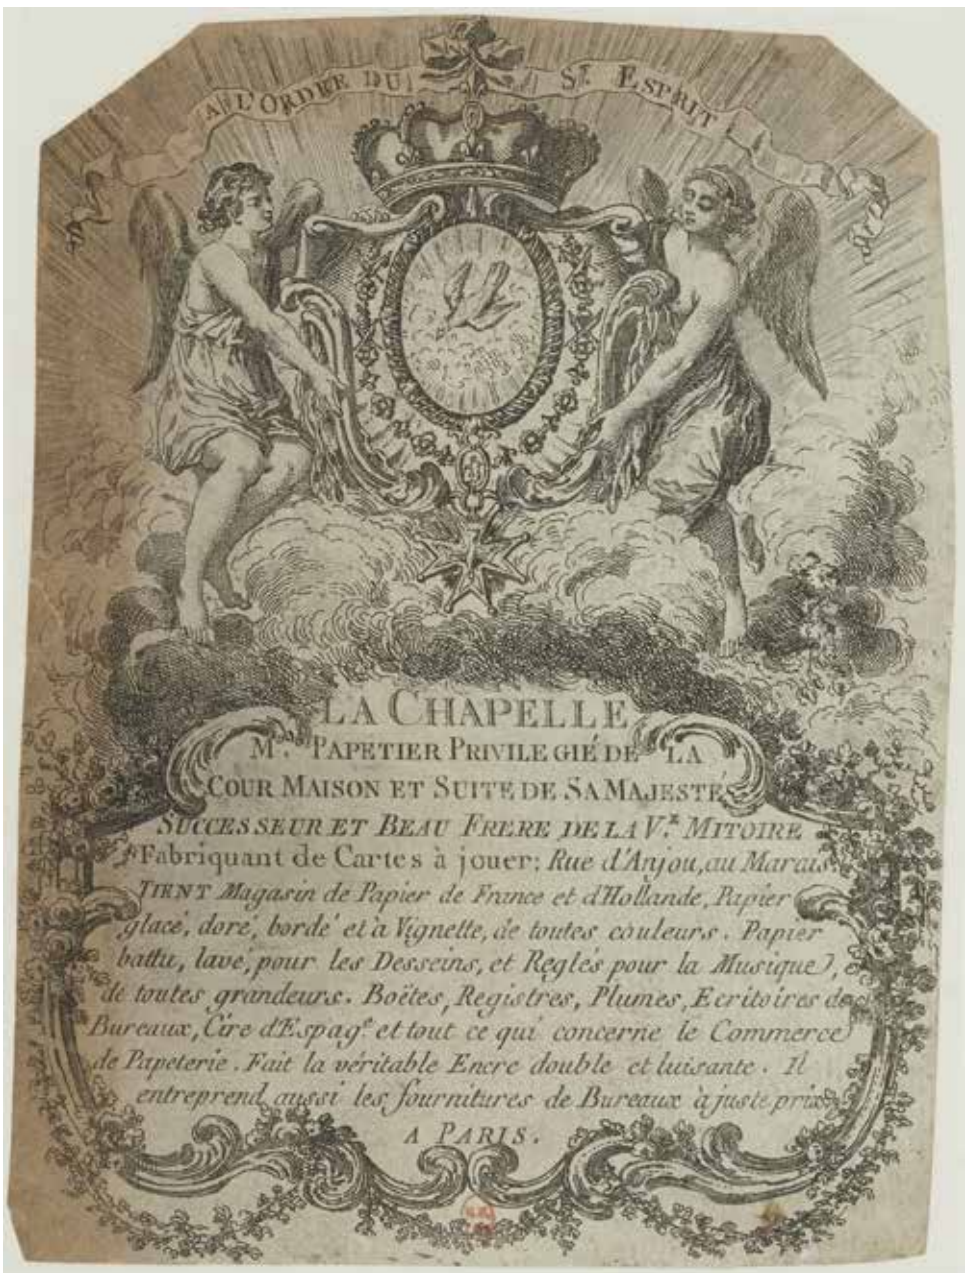 A L'ORDRE DU St. ESPRIT
LA CHAPELLE
Md. PAPETIER PRIVILEGIÉ DE LA
COUR MAISON ET SUITE DE SA MAJESTÉ
SUCCESSEUR ET BEAU FRERE DE LA Ve. MITOIRE
Fabriquant de Cartes à jouer; Rue d'Anjou, au Marais.
TIENT Magasin de Papier de France et d'Hollande, Papier
glacé, doré, bordé et à Vignette, de toutes couleurs. Papier
battu, lavé, pour les Desseins, et Reglés pour la Musique,
de toutes grandeurs. Boëtes, Registres, Plumes, Ecritoires de
Bureaux, Cire d'Espage. et tout ce qui concerne le Commerce
de Papeterie. Fait la véritable Encre double et luisante. Il
entreprend aussi les fournitures de Bureaux à juste prix
A PARIS.